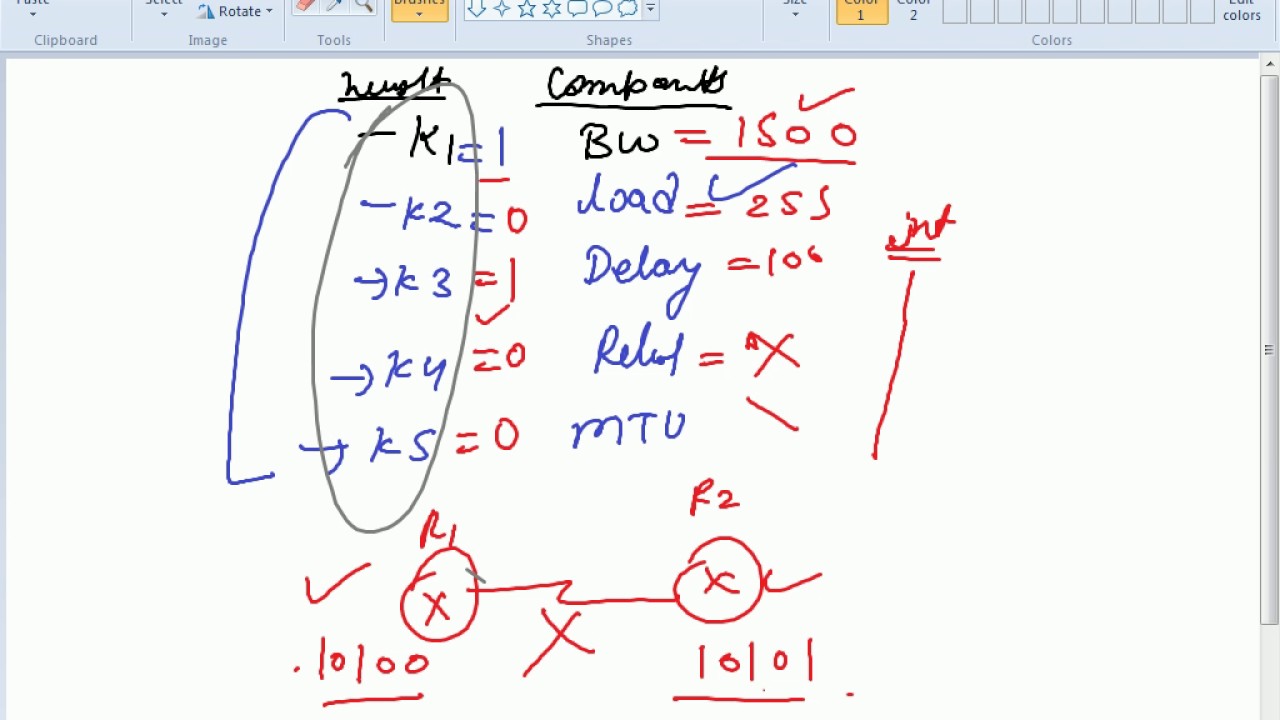 Paste Select Rotate Brushes Size Color 1 Color 2 Edit colors
Clipboard Image Tools Shapes Colors
Components
- K1 = 1 BW = 1500
- K2 = 0 load = 255
→ K3 = 1 Delay = 100 int
→ K4 = 0 = X
→ K5 = 0 MTU
R1 R2
X X
X
10100 10101